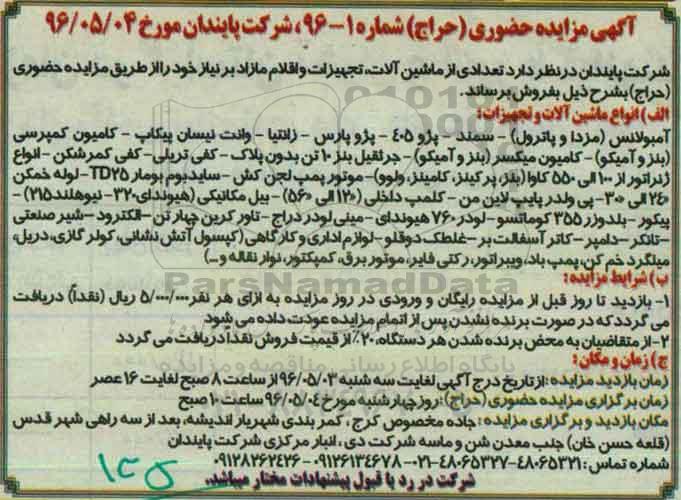 آگهی مزایده حضوری (حراج) شماره ۱-۹۶، شرکت پایندان مورخ ۹۶/۰۵/۰۴
شرکت پایندان در نظر دارد تعدادی از ماشین آلات، تجهیزات و اقلام مازاد بر نیاز خود را از طریق مزایده حضوری
(حراج) بشرح ذیل بفروش برساند.
الف) انواع ماشین آلات و تجهیزات:
آمبولانس (مزدا و پاترول) - سمند - پژو ۴۰۵ - پژو پارس - زانتیا - وانت نیسان پیکاپ - کامیون کمپرسی
(بنز و آمیکو) - کامیون میکسر (بنز و آمیکو) - جرثقیل بنز ۱۰ تن بدون پلاک - کفی تریلی- کفی کمرشکن - انواع
ژنراتور از ۱۰۰ الی ۵۵۰ کاوا (بنز، پرکینز، کامینز، ولوو)- موتور پمپ لجن کش - سایدبوم بومار TD25 - لوله خمکن
۲۴۰ الی ۳۰۰- پی ولدر پایپ لاین من - کلمپ داخلی (۱۲۰ الی ۵۶۰) - بیل مکانیکی (هیوندای ۳۲۰- نیوهلند ۲۱۵) -
پیکور - بلدوزر ۳۵۵ کوماتسو - لودر ۷۶۰ هیوندای - مینی لودر دراج - تاور کرین چهار تن - الکترود - شیر صنعتی
- تانکر - دامپر - کاتر آسفالت بر - غلطک دوقلو - لوازم اداری و کارگاهی (کپسول آتش نشانی، کولر گازی، دریل،
میلگرد خم کن، پمپ باد، ویبراتور، رکتی فایر، موتور برق، کمپکتور، نوار نقاله و...)
ب) شرایط مزایده:
۱- بازدید تا روز قبل از مزایده رایگان و ورودی در روز مزایده به ازای هر نفر ۵/۰۰۰/۰۰۰ ریال (نقداً) دریافت
می گردد که در صورت برنده نشدن پس از اتمام مزایده عودت داده می شود
۲- از متقاضیان به محض برنده شدن هر دستگاه، ۲۰٪ از قیمت فروش نقداً دریافت می گردد
ج) زمان و مکان:
زمان بازدید مزایده: از تاریخ درج آگهی لغایت سه شنبه ۹۶/۰۵/۰۳ از ساعت ۸ صبح لغایت ۱۶ عصر
زمان برگزاری مزایده حضوری (حراج): روز چهارشنبه مورخ ۹۶/۰۵/۰۴ ساعت ۱۰ صبح
مکان بازدید و برگزاری مزایده: جاده مخصوص کرج، کمربندی شهریار اندیشه، بعد از سه راهی شهر قدس
(قلعه حسن خان) جنب معدن شن و ماسه شرکت دی، انبار مرکزی شرکت پایندان
شماره تماس: ۴۸۰۶۵۳۲۱-۴۸۰۶۵۳۲۷-۰۲۱ - ۰۹۱۲۶۱۳۴۶۷۸ - ۰۹۱۲۸۲۶۲۴۲۶
شرکت در رد یا قبول پیشنهادات مختار میباشد.
۱۲۵
ParsNamadData
پایگاه اطلاع رسانی مناقصه و مزایده